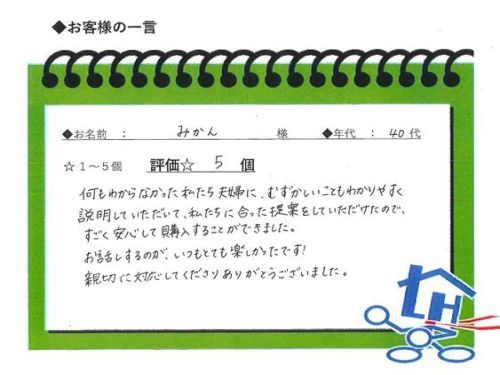 ◆お客様の一言
◆お名前 ： みかん 様 ◆年代 ： 40代
☆1～5個 評価☆ 5 個
何もわからなかった私たち夫婦に、むずかしいこともわかりやすく
説明していただいて、私たちに合った提案をしていただけたので、
すごく安心して購入することができました。
お話しするのが、いつもとても楽しかったです!
親切に対応してくださりありがとうございました。
LH